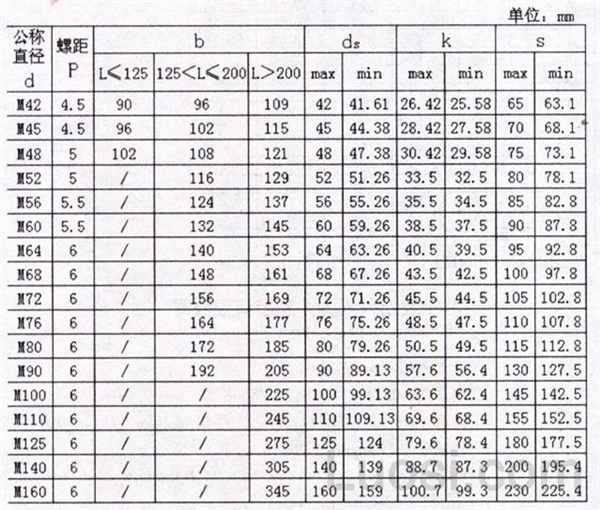 单位：mm
公称直径 d 螺距 P b ds k s
L≤125 125<L≤200 L>200 max min max min max min
M42 4.5 90 96 109 42 41.61 26.42 25.58 65 63.1
M45 4.5 96 102 115 45 44.38 28.42 27.58 70 68.1
M48 5 102 108 121 48 47.38 30.42 29.58 75 73.1
M52 5 / 116 129 52 51.26 33.5 32.5 80 78.1
M56 5.5 / 124 137 56 55.26 35.5 34.5 85 82.8
M60 5.5 / 132 145 60 59.26 38.5 37.5 90 87.8
M64 6 / 140 153 64 63.26 40.5 39.5 95 92.8
M68 6 / 148 161 68 67.26 43.5 42.5 100 97.8
M72 6 / 156 169 72 71.26 45.5 44.5 105 102.8
M76 6 / 164 177 76 75.26 48.5 47.5 110 107.8
M80 6 / 172 185 80 79.26 50.5 49.5 115 112.8
M90 6 / 192 205 90 89.13 57.6 56.4 130 127.5
M100 6 / / 225 100 99.13 63.6 62.4 145 142.5
M110 6 / / 245 110 109.13 69.6 68.4 155 152.5
M125 6 / / 275 125 124 79.6 78.4 180 177.5
M140 6 / / 305 140 139 88.7 87.3 200 195.4
M160 6 / / 345 160 159 100.7 99.3 230 225.4
Luosi.com